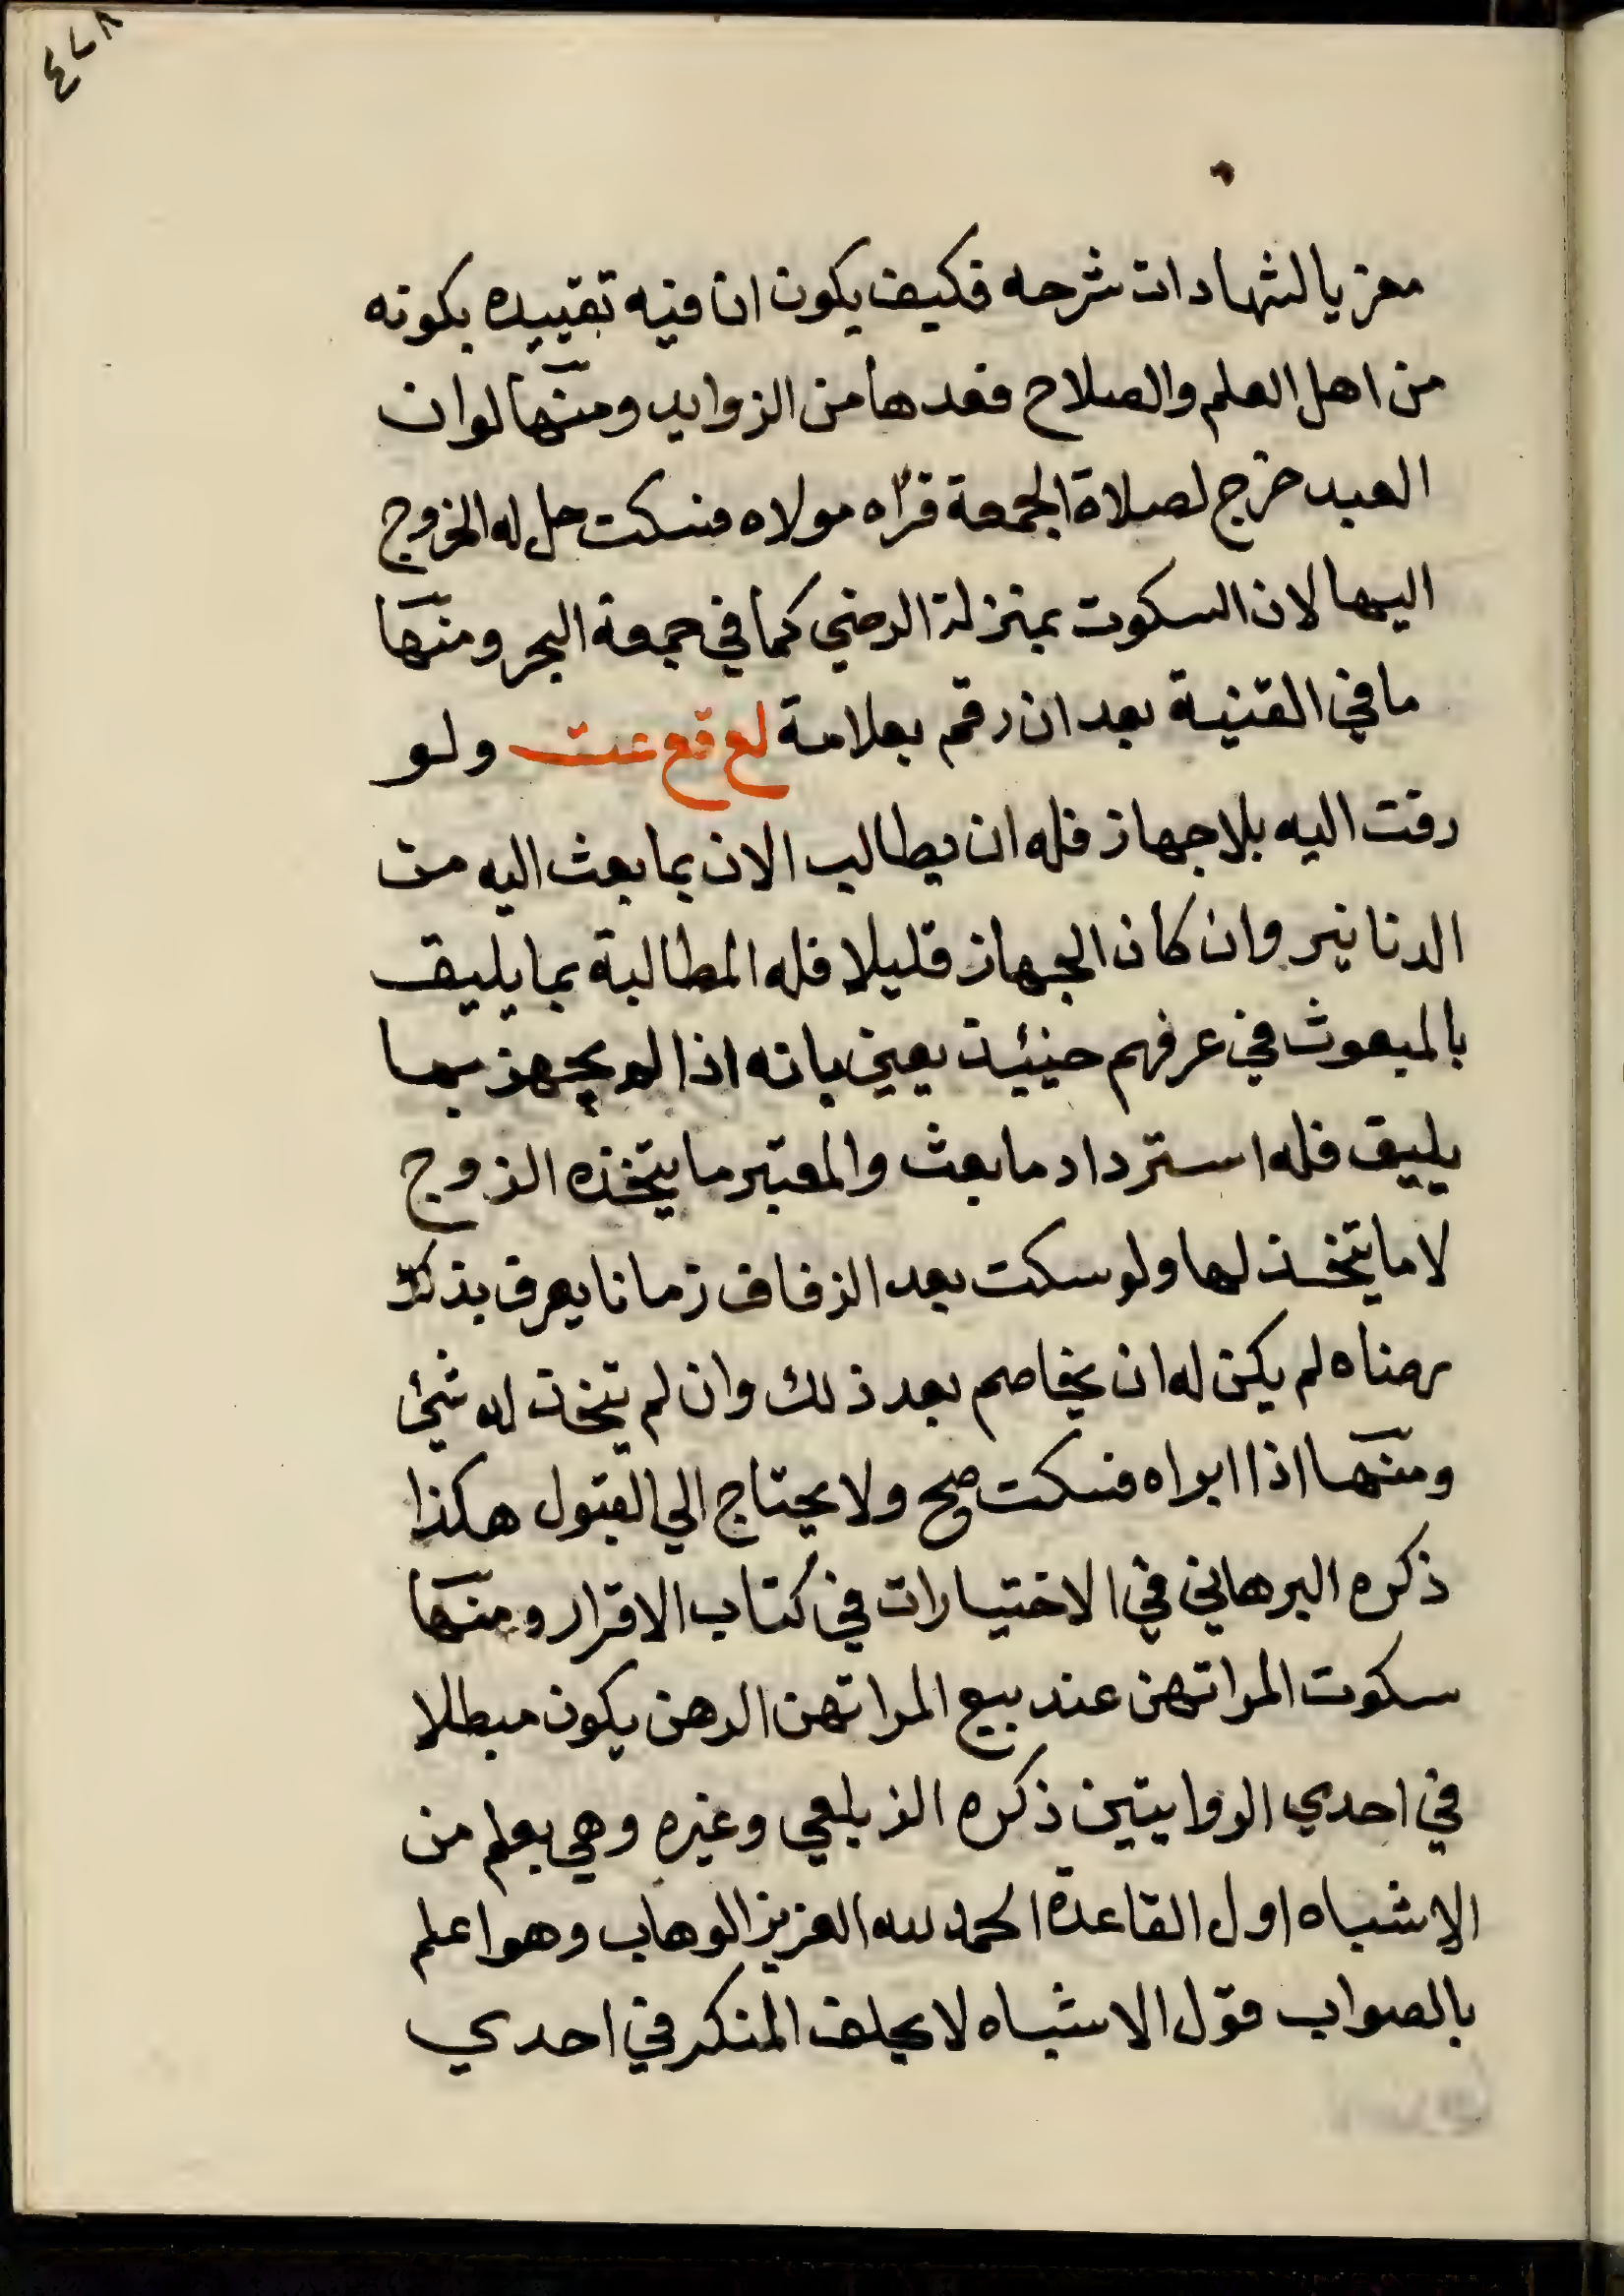 ٤٧٨
معزيا لشهادات شرحه فكيف يكون ان فيه تقييده بكونه
من اهل العلم والصلاح فعدها من الزوايد ومنها لو ان
العبد خرج لصلاة الجمعة فرآه مولاه فسكت حل له الخروج
اليها لان السكوت بمنزلة الرضي كما في جمعة البحر ومنها
ما في القنية بعد ان رقم بعلامة لع قع عت ولو
زفت اليه بلا جهاز فله ان يطالب الاب بما بعث اليه من
الدنانير وان كان الجهاز قليلا فله المطالبة بما يليق
بالمبعوث في عرفهم حينئذ يعني بانه اذا لم يجهز بما
يليق فله استرداد ما بعث والمعتبر ما يتخذه الزوج
لا ما يتخذ لها ولو سكت بعد الزفاف زمانا يعرف بذلك
رضاه لم يكن له ان يخاصم بعد ذلك وان لم يتخذ له شئ
ومنها اذا ابراه فسكت صح ولا يحتاج الي القبول هكذا
ذكره البرهاني في الاختيارات في كتاب الاقرار ومنها
سكوت المراتهن عند بيع المراتهن الرهن يكون مبطلا
في احدي الروايتين ذكره الزيلعي وغيره وهي يعلم من
الاشباه اول القاعدة الحمد لله العزيز الوهاب وهو اعلم
بالصواب قول الاشباه لا يحلف المنكر في احدي